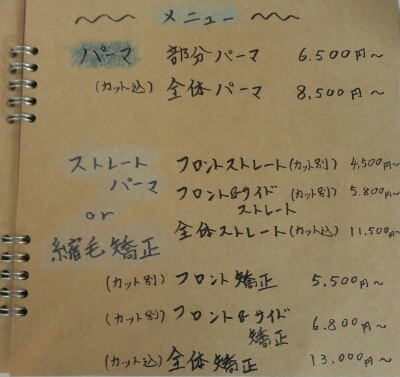 〜 メニュー 〜
パーマ 部分パーマ 6.500円〜
(カット込) 全体パーマ 8,500円〜
ストレート フロントストレート(カット別) 4,500円〜
パーマ フロント&サイド (カット別) 5.800円〜
ストレート
or 全体ストレート(カット込) 11.500円〜
縮毛矯正
(カット別) フロント矯正 5,500円〜
(カット別) フロント&サイド 6.800円〜
矯正
(カット込) 全体矯正 13,000円〜